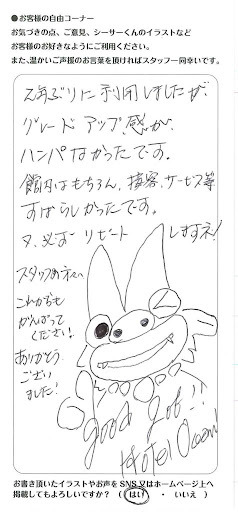 ●お客様の自由コーナー
お気づきの点、ご意見、シーサーくんのイラストなど
お客様のお好きなようにご利用ください。
また、温かいご声援のお言葉を頂ければスタッフ一同幸いです。
2年ぶりに利用しましたが、
グレードアップ感が、
ハンパなかったです。
館内はもちろん、接客、サービス等
すばらしかったです。
又、必ず リピート しますネ!
スタッフの
これからも
がんばって
ください!
ありがとう
ござい
ました!
good
Hotel Ocean!!
お書き頂いたイラストやお声をSNS又はホームページ上へ
掲載してもよろしいですか? ( はい ・ いいえ )